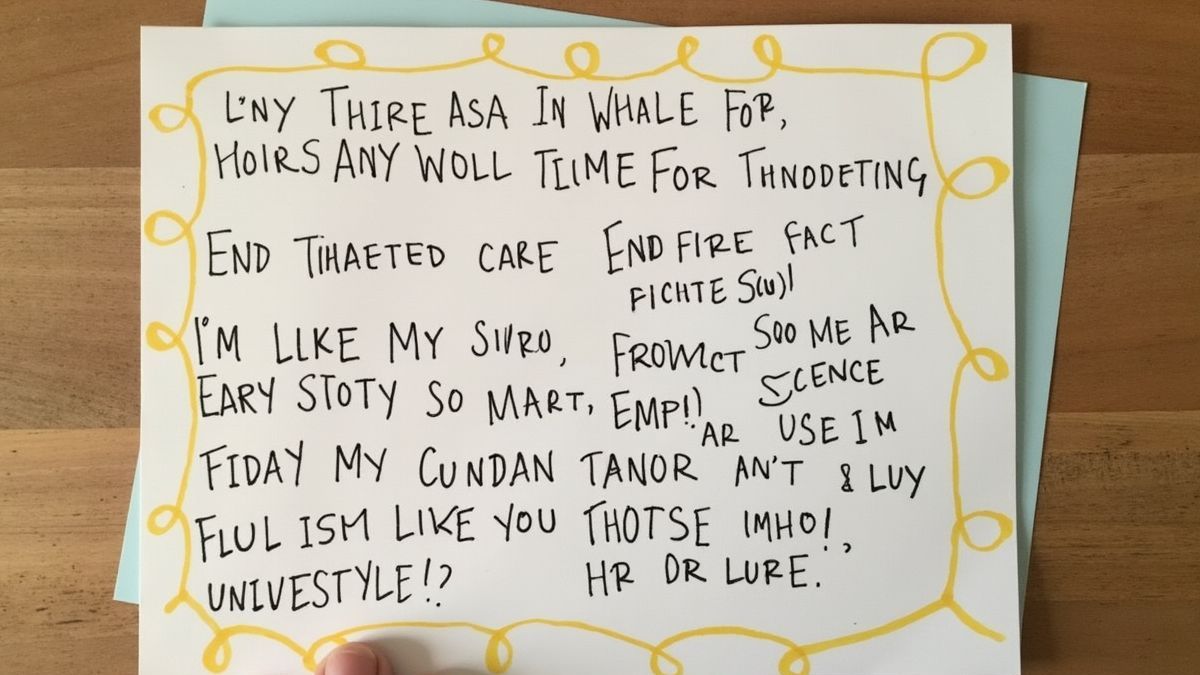 L'NY THIRE ASA IN WHALE FOR,
HOIRS ANY WOLL TIIME FOR THNODETING
END TIHAETED CARE END FIRE FACT
FICHTE S(u)!
I'M LIKE MY SIVRO, FROWICT SOO ME AR
EARY STOTY SO MART, EMP!! SCENCE
AR USE IM
FIDAY MY CUNDAN TANOR AN'T & LUY
FLUL ISM LIKE YOU THOTSE IMHO!,
UNIVESTYLE!? HR DR LURE.